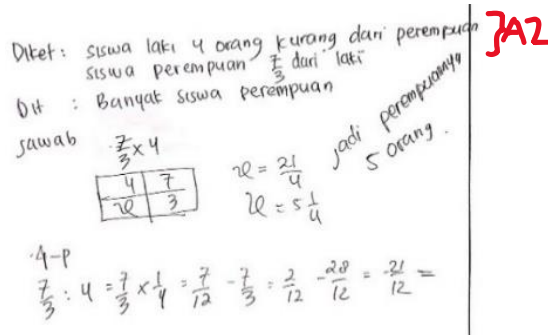 Diket : siswa laki 4 orang kurang dari perempuan }A2
siswa perempuan 7/3 dari laki
Dit : Banyak siswa perempuan
jawab
7/3 x 4
4 7
x 3
x = 21/4
x = 5 1/4
jadi perempuannya
5 orang.
4-P
7/3 : 4 = 7/3 x 1/4 = 7/12 - 7/3 = 7/12 - 28/12 = -21/12 =